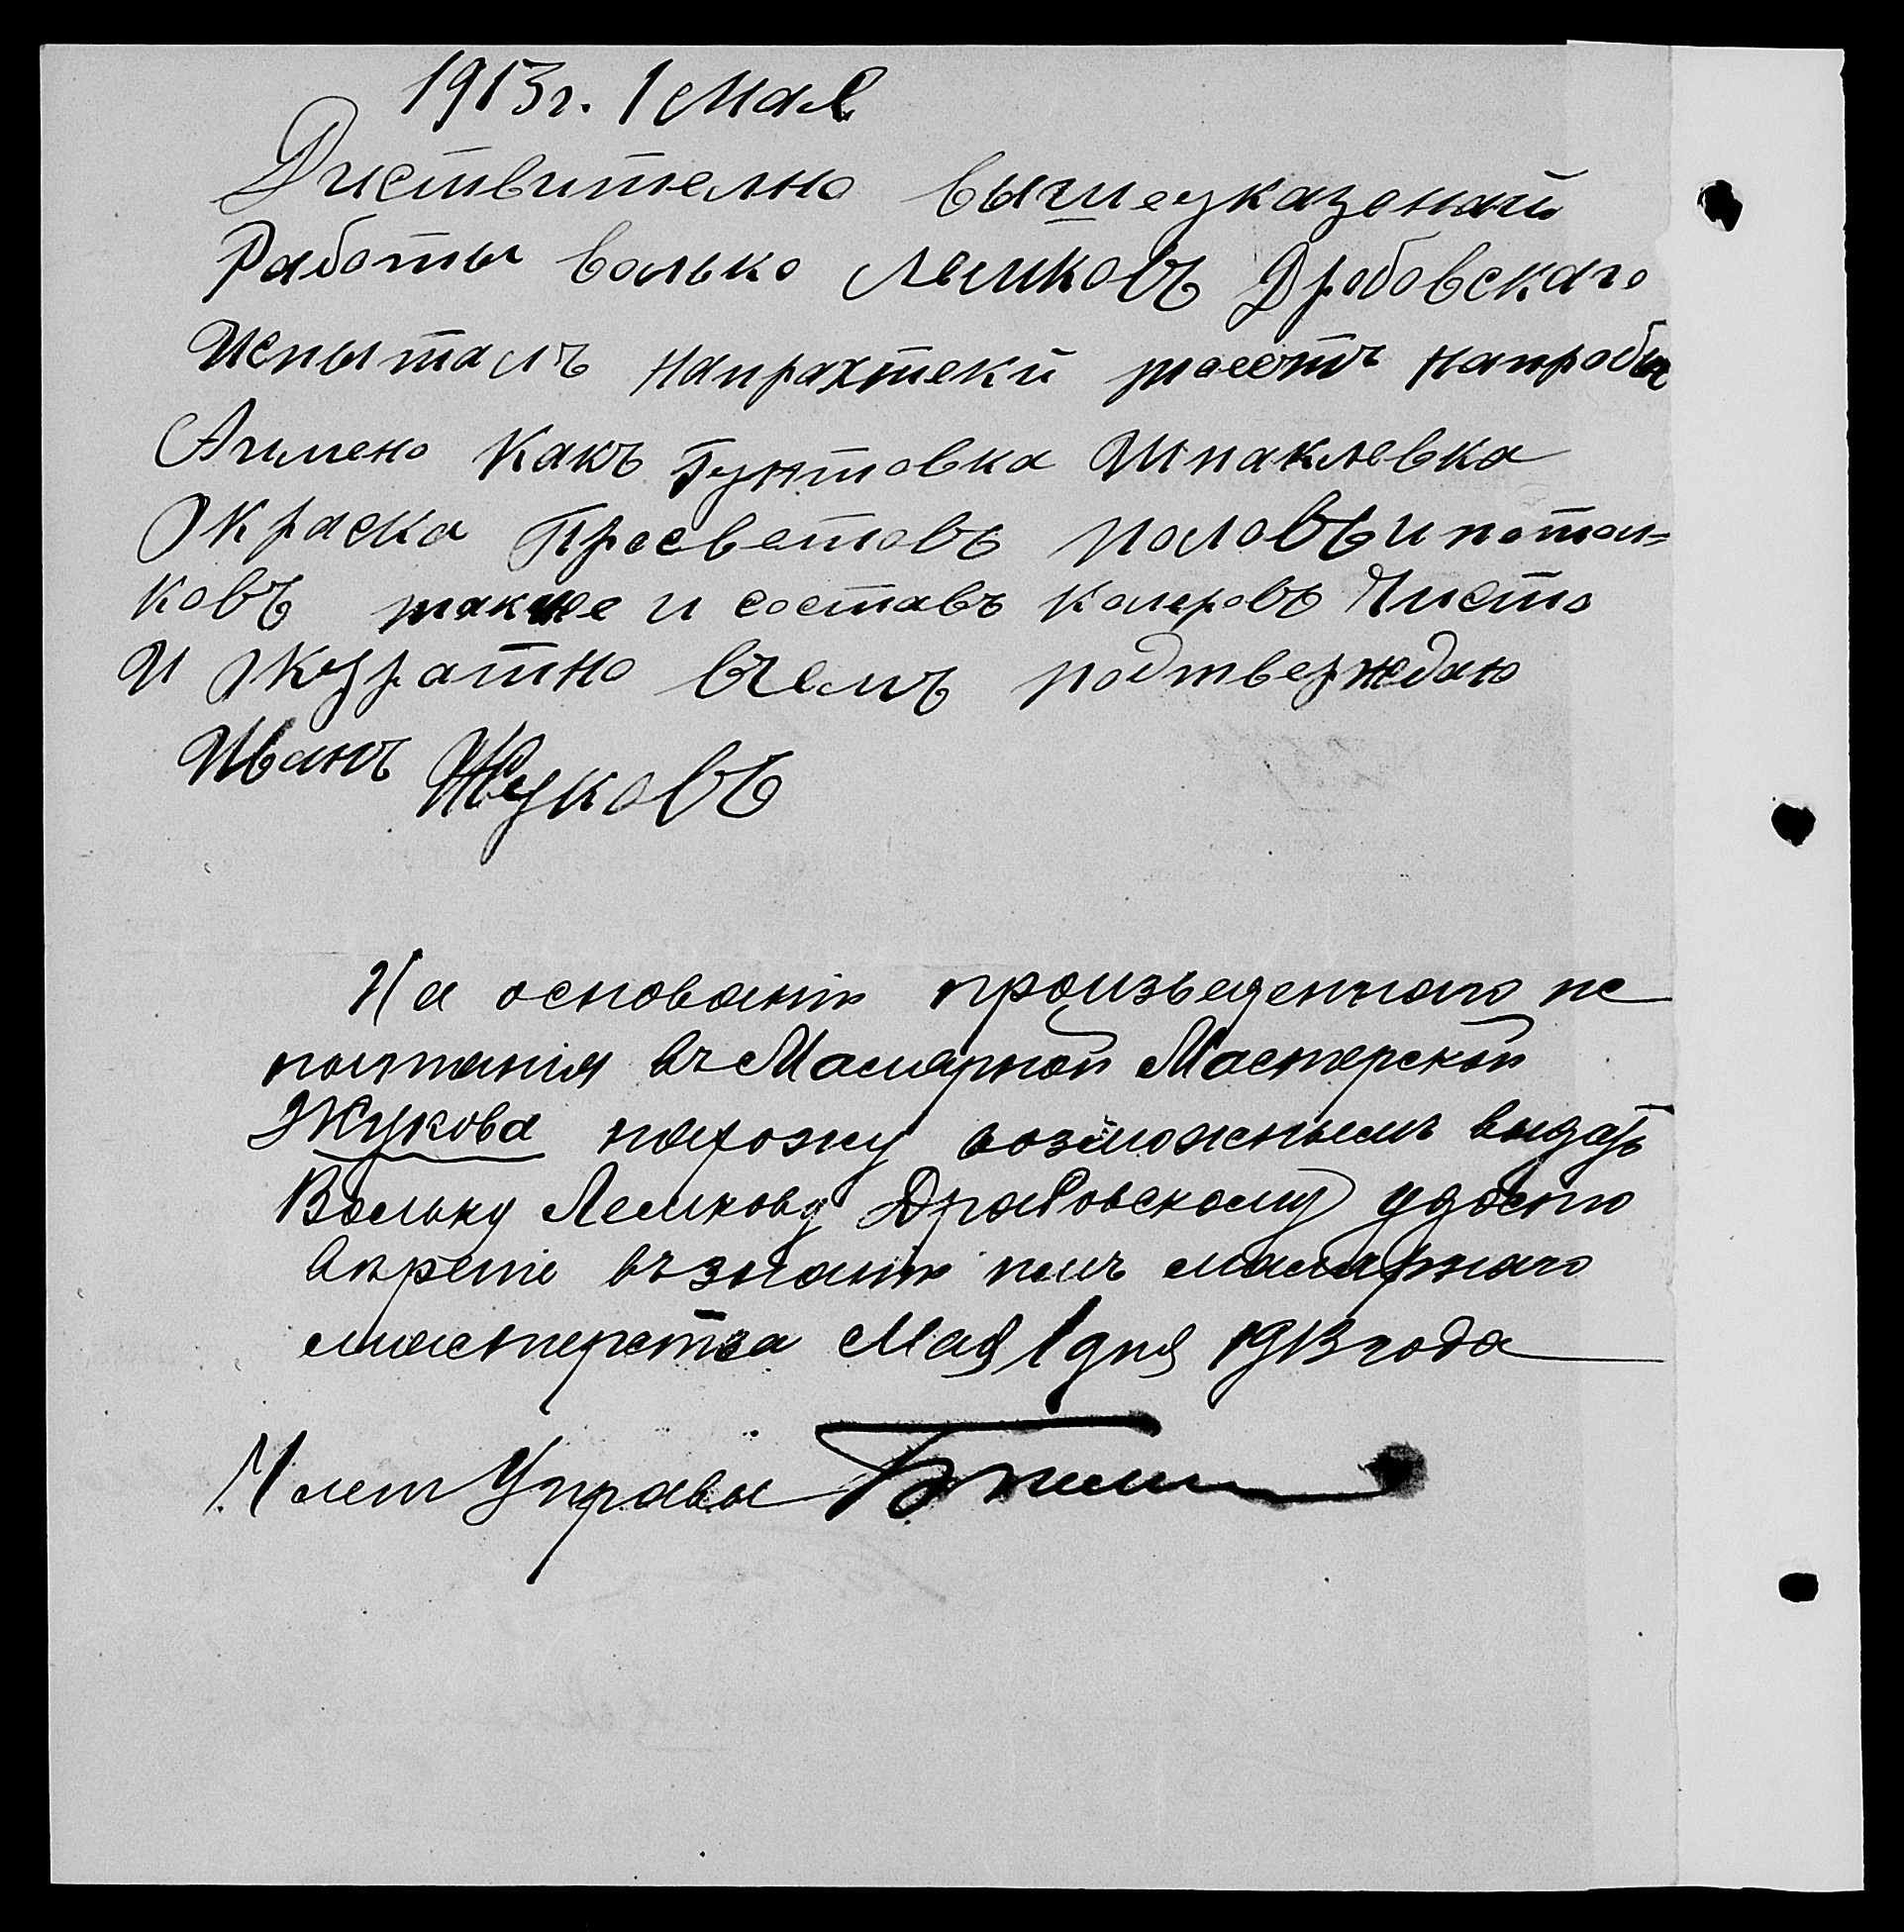 1913г. 1 Мая
Диствително вышеуказаной
Работы Волько Лемковъ Дробовскаго
Испыталъ напрахтеки тоесть напробы
Аимено какъ Грунтовка Шпаклевка
Окраска Просветовъ половъ и потол=
ковъ также и составъ колеровъ Чисто
И Окуратно вчемъ подтверждаю
Иванъ Жуковъ
На основаніи произведеннаго ис
пытанія въ Малярной Мастерской
Жукова нахожу возможнымъ выдать
Вольку Лемкову Драбовскому удосто
вѣреніе въ знаніи имъ малярнаго
мастерства Мая 1 дня 1913 года
Член Управы